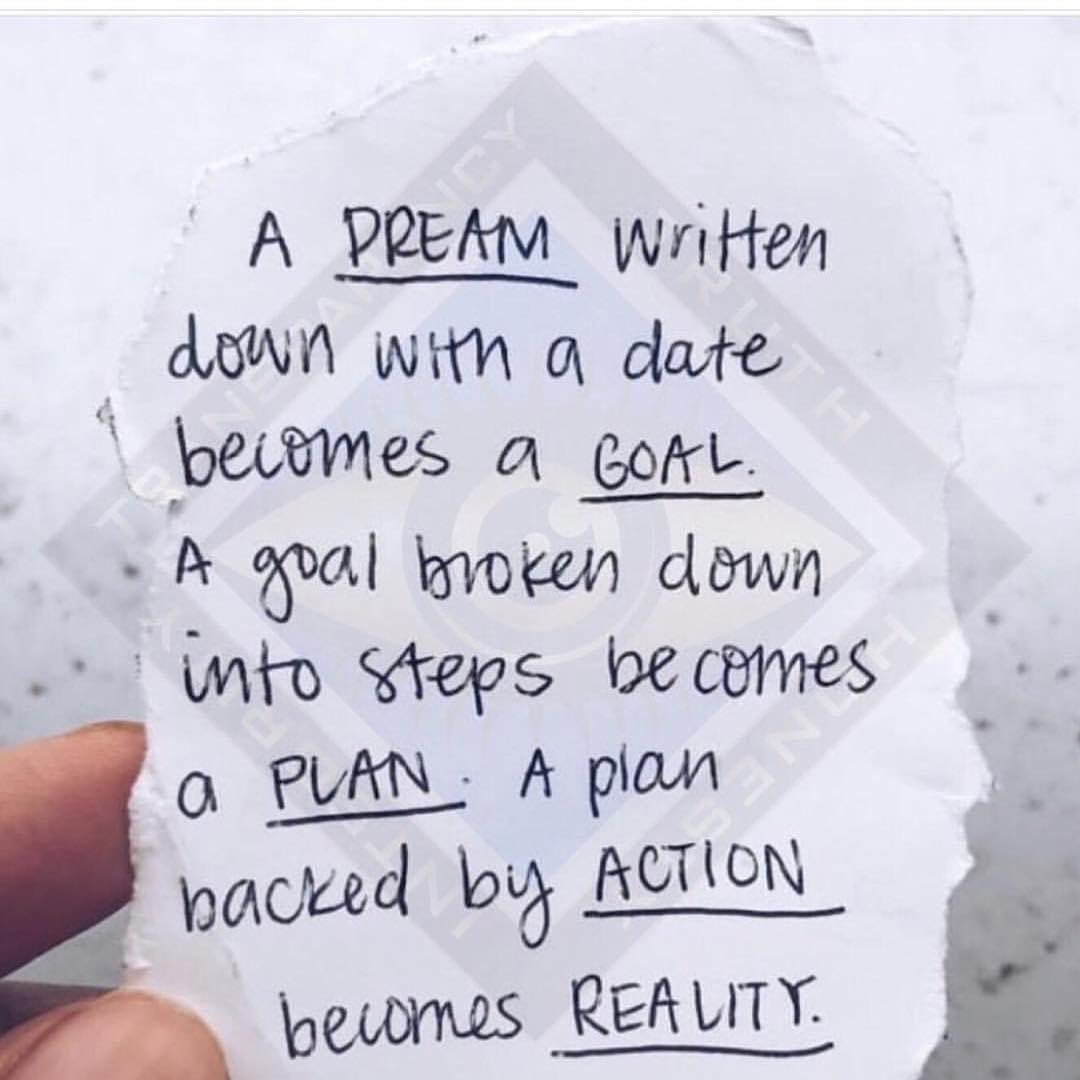 A DREAM written
down with a date
becomes a GOAL.
A goal broken down
into steps becomes
a PLAN. A plan
backed by ACTION
becomes REALITY.
TRANSPARENCY
TRUTH
HONESTY
INTEGRITY